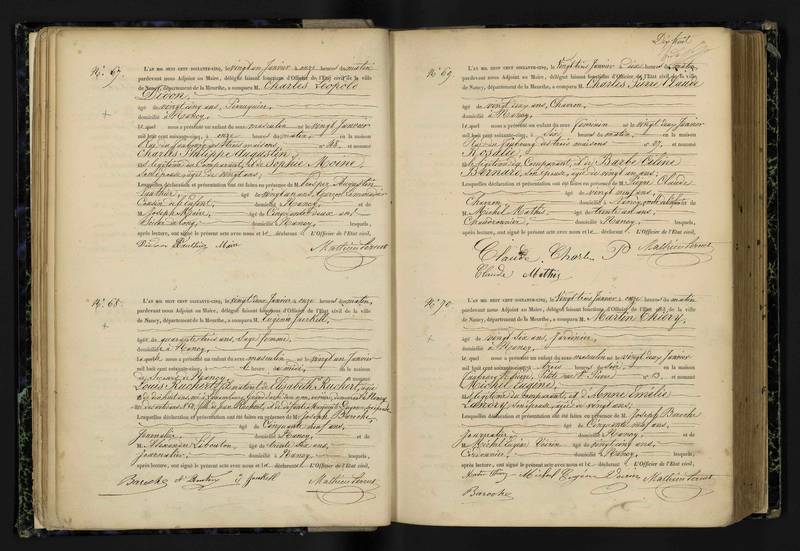 N.° 67.
L'AN MIL HUIT CENT SOIXANTE-CINQ, le vingt un Janvier à onze heures du matin
pardevant nous Adjoint au Maire, délégué faisant fonctions d'Officier de l'État civil de la ville
de Nancy, département de la Meurthe, a comparu M. Charles Léopold
âgé de vingt cinq ans,
domicilié à Nancy,
Lequel nous a présenté un enfant du sexe masculin né le vingt Janvier
mil huit cent soixante-cinq, à onze heures du matin, en la maison
Rue du faubourg des trois maisons n° 48, et nommé
Charles Philippe Augustin,
fils légitime du Comparant, et de Sophie Moine
Son épouse, âgée de vingt ans;
Lesquelles déclaration et présentation ont été faites en présence de M. Augustin
Gauthier, âgé de vingt un ans,
Cousin de l'enfant, domicilié à Nancy, et de
M. Joseph Maire, âgé de Cinquante deux ans
domicilié à Nancy, lesquels,
après lecture, ont signé le présent acte avec nous et le déclarant L'Officier de l'État civil,
N.° 68.
L'AN MIL HUIT CENT SOIXANTE-CINQ, le vingt deux Janvier à onze heures du matin,
pardevant nous Adjoint au Maire, délégué faisant fonctions d'Officier de l'État civil de la ville
de Nancy, département de la Meurthe, a comparu M. Eugénie
âgée de quarante trois ans, Sage femme,
domiciliée à Nancy,
Laquelle nous a présenté un enfant du sexe masculin né le vingt un Janvier
mil huit cent soixante-cinq, à
Louis Ruchert, fils naturel de Elisabeth Ruchert, âgée
Lesquelles déclaration et présentation ont été faites en présence de M. Joseph Baroche,
âgé de Cinquante neuf ans,
Journalier, domicilié à Nancy, et de
M. Alexandre âgé de trente six ans,
Journalier, domicilié à Nancy, lesquels,
après lecture, ont signé le présent acte avec nous et le déclarant L'Officier de l'État civil,
Baroche
Dix huit
N.° 69.
L'AN MIL HUIT CENT SOIXANTE-CINQ, le Vingt trois Janvier Dix heures du matin
pardevant nous Adjoint au Maire, délégué faisant fonctions d'Officier de l'État civil de la ville
de Nancy, département de la Meurthe, a comparu M. Charles Pierre Claude
âgé de vingt deux ans, Charron,
domicilié à Nancy,
Lequel nous a présenté un enfant du sexe féminin né le vingt deux Janvier
mil huit cent soixante-cinq, à Six heures du matin, en la maison
Rue du faubourg des trois maisons n° 27, et nommé
Rosalie,
fille légitime du Comparant, et de Barbe Céline
Bernard, Son épouse, âgée de vingt un ans;
Lesquelles déclaration et présentation ont été faites en présence de M. Claude
Charron, domicilié à Nancy, et de
M. Michel Mathis, âgé de trente un ans,
domicilié à Nancy, lesquels,
après lecture, ont signé le présent acte avec nous et le déclarant L'Officier de l'État civil,
Claude, Charles P
Claude Mathis
N.° 70
L'AN MIL HUIT CENT SOIXANTE-CINQ, le Vingt trois Janvier, onze heures du matin
pardevant nous Adjoint au Maire, délégué faisant fonctions d'Officier de l'État civil de la ville
de Nancy, département de la Meurthe, a comparu M. Martin Thiéry,
âgé de vingt six ans, Jardinier,
domicilié à Nancy,
Lequel nous a présenté un enfant du sexe masculin né le vingt deux Janvier
mil huit cent soixante-cinq, à trois heures du soir, en la maison
n° 13, et nommé
Michel Eugène,
fils légitime du Comparant, et de Anne Emélie
Son épouse, âgée de vingt ans;
Lesquelles déclaration et présentation ont été faites en présence de M. Joseph Baroche
âgé de Cinquante neuf ans,
Journalier, domicilié à Nancy, et de
M. Michel Eugène Voirin âgé de vingt cinq ans,
Cordonnier, domicilié à Nancy, lesquels,
après lecture, ont signé le présent acte avec nous et le déclarant L'Officier de l'État civil,
Michel Eugène Voirin
Baroche